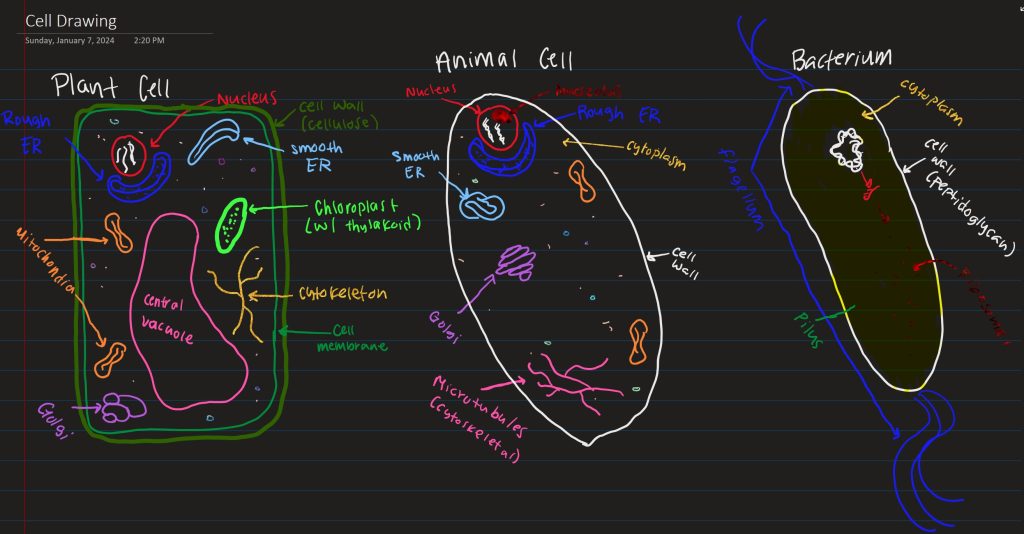 Cell Drawing
Sunday, January 7, 2024 2:20 PM
Plant Cell
Nucleus
cell wall
(cellulose)
Rough
ER
smooth
ER
Chloroplast
(w/ thylakoid)
Mitochondia
central
vacuole
cytokeleton
cell
membrane
Golgi
Animal Cell
Nucleus
Rough ER
cytoplasm
smooth
ER
cell
wall
Golgi
Microtubules
(cytoskeletal)
Bacterium
cytoplasm
cell
wall
(peptidoglycan)
flagellum
Pilus